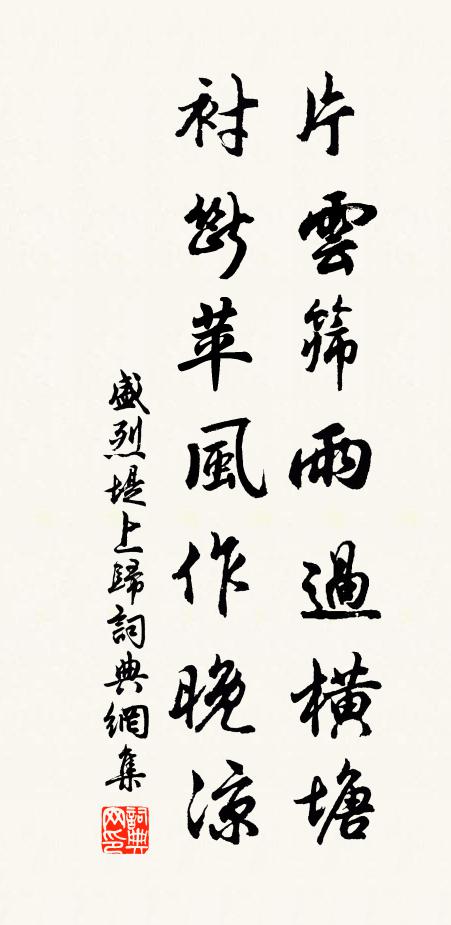 片雲篩雨過橫塘
襯斷苹風作晚涼
盛烈堤上歸詞典網集
詞典
网印